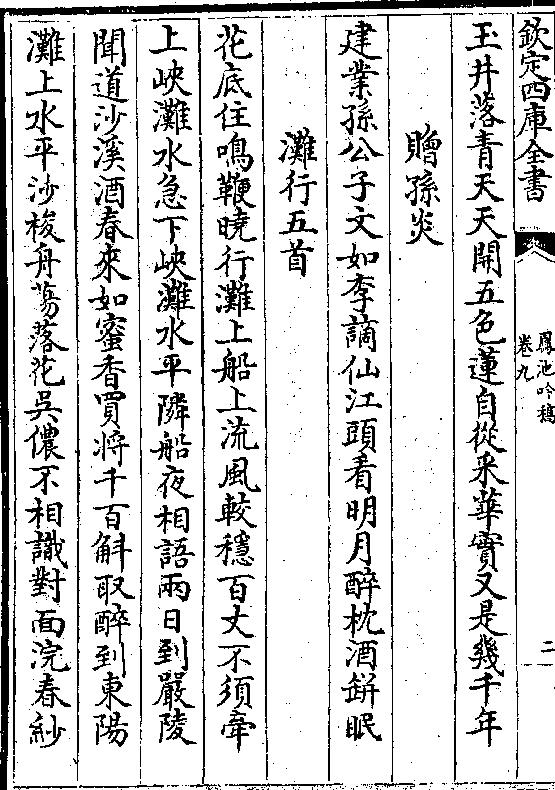 欽定四庫全書
鳳池吟稿
卷九
二
玉井落青天天開五色蓮自從采華實又是幾千年
贈孫炎
建業孫公子文如李謫仙江頭看明月醉枕酒缾眠
灘行五首
花底住鳴鞭曉行灘上船上流風較穩百丈不須牽
上峽灘水急下峽灘水平隣船夜相語兩日到嚴陵
聞道沙溪酒春來如蜜香買將千百斛取醉到東陽
灘上水平沙梭舟蕩落花吳儂不相識對面浣春紗